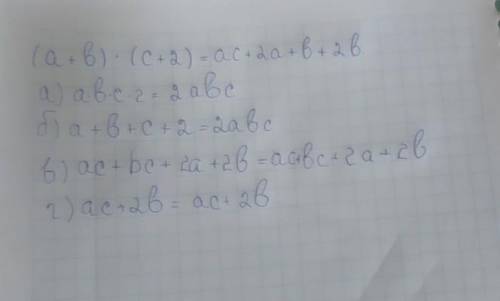 (a + b) · (c + 2) = ac + 2a + b + 2b
а) ab·c·2 = 2abc
б) a + b + c + 2 = 2abc
в) ac + bc + 2a + 2b = ac+bc + 2a + 2b
г) ac + 2b = ac + 2b